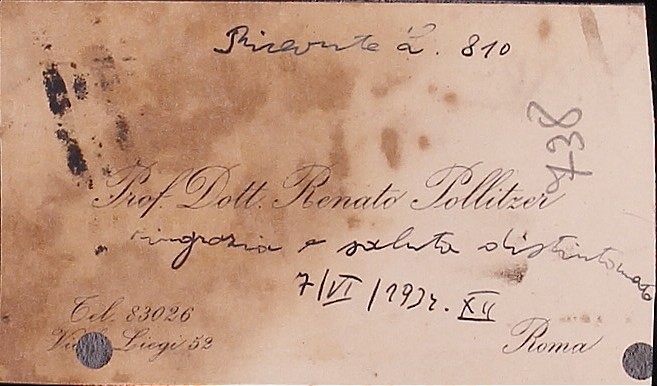 Ricevute L. 810
738
Prof. Dott. Renato Pollitzer
ringrazia e saluta distintamente
7/VI/1934. XII
Tel. 83026
Viale Liegi 52
Roma